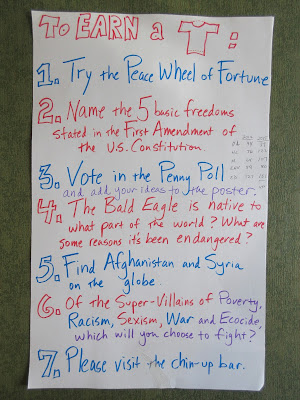 To EARN a :
1. Try the Peace Wheel of Fortune
2. Name the 5 basic freedoms
stated in the First Amendment of
the U.S. Constitution.
3. Vote in the Penny Poll
and add your ideas to the poster.
4. The Bald Eagle is native to
what part of the world? What are
some reasons it's been endangered?
5. Find Afghanistan and Syria
on the globe.
6. Of the Super-Villains of Poverty,
Racism, Sexism, War and Ecocide,
which will you choose to fight?
7. Please visit the chin-up bar.